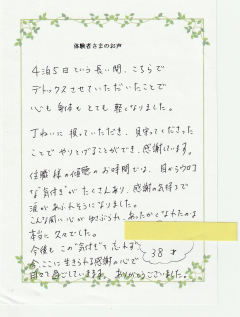 体験者さまのお声
4泊5日という長い間、こちらで
デトックスさせていただいたことで
心も身体もとても軽くなりました。
丁ねいに扱っていただき、見守ってくださった
ことでやりとげることができ、感謝しています。
住職様の傾聴のお時間では、目からウロコ
な"気付き"がたくさんあり、感謝の気持ちで
涙があふれそうになりました。
こんな風に心がゆさぶられ、あったかくなれたのは
本当に久々でした。
今後もこの"気付き"を忘れず
今ここに生きられる感謝の心で
日々を過ごしていきます。ありがとうございました。
38才